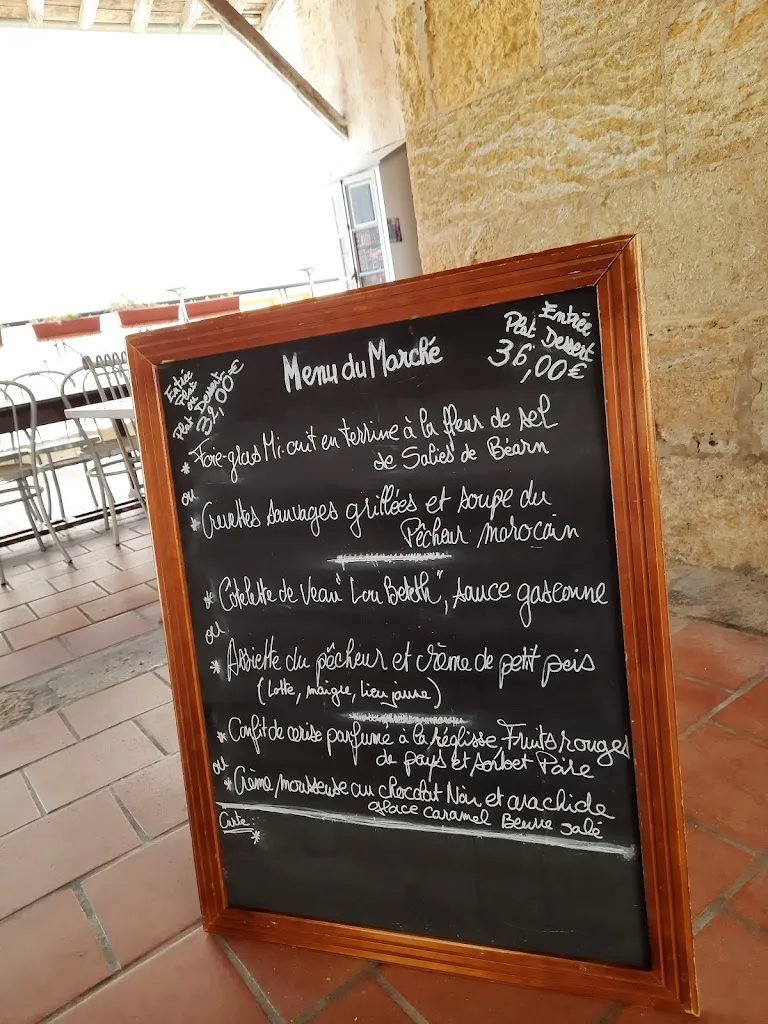 Menu du Marché
Entrée
Plat
ou
Plat Dessert
32,00€
Entrée
Plat Dessert
36,00€
* Foie-gras Mi-cuit en terrine à la fleur de sel
de Salies de Béarn
ou
* Crevettes sauvages grillées et soupe du
Pêcheur marocain
* Côtelette de Veau "Lou Betëth", sauce gasconne
ou
* Assiette du pêcheur et crème de petit pois
(Lotte, maigre, Lieu jaune)
* Confit de cerise parfumé à la réglisse, Fruits rouges
de pays et sorbet Poire
ou
* Crème mousseuse au chocolat Noir et arachide
glace caramel Beurre salé
Carte :
*